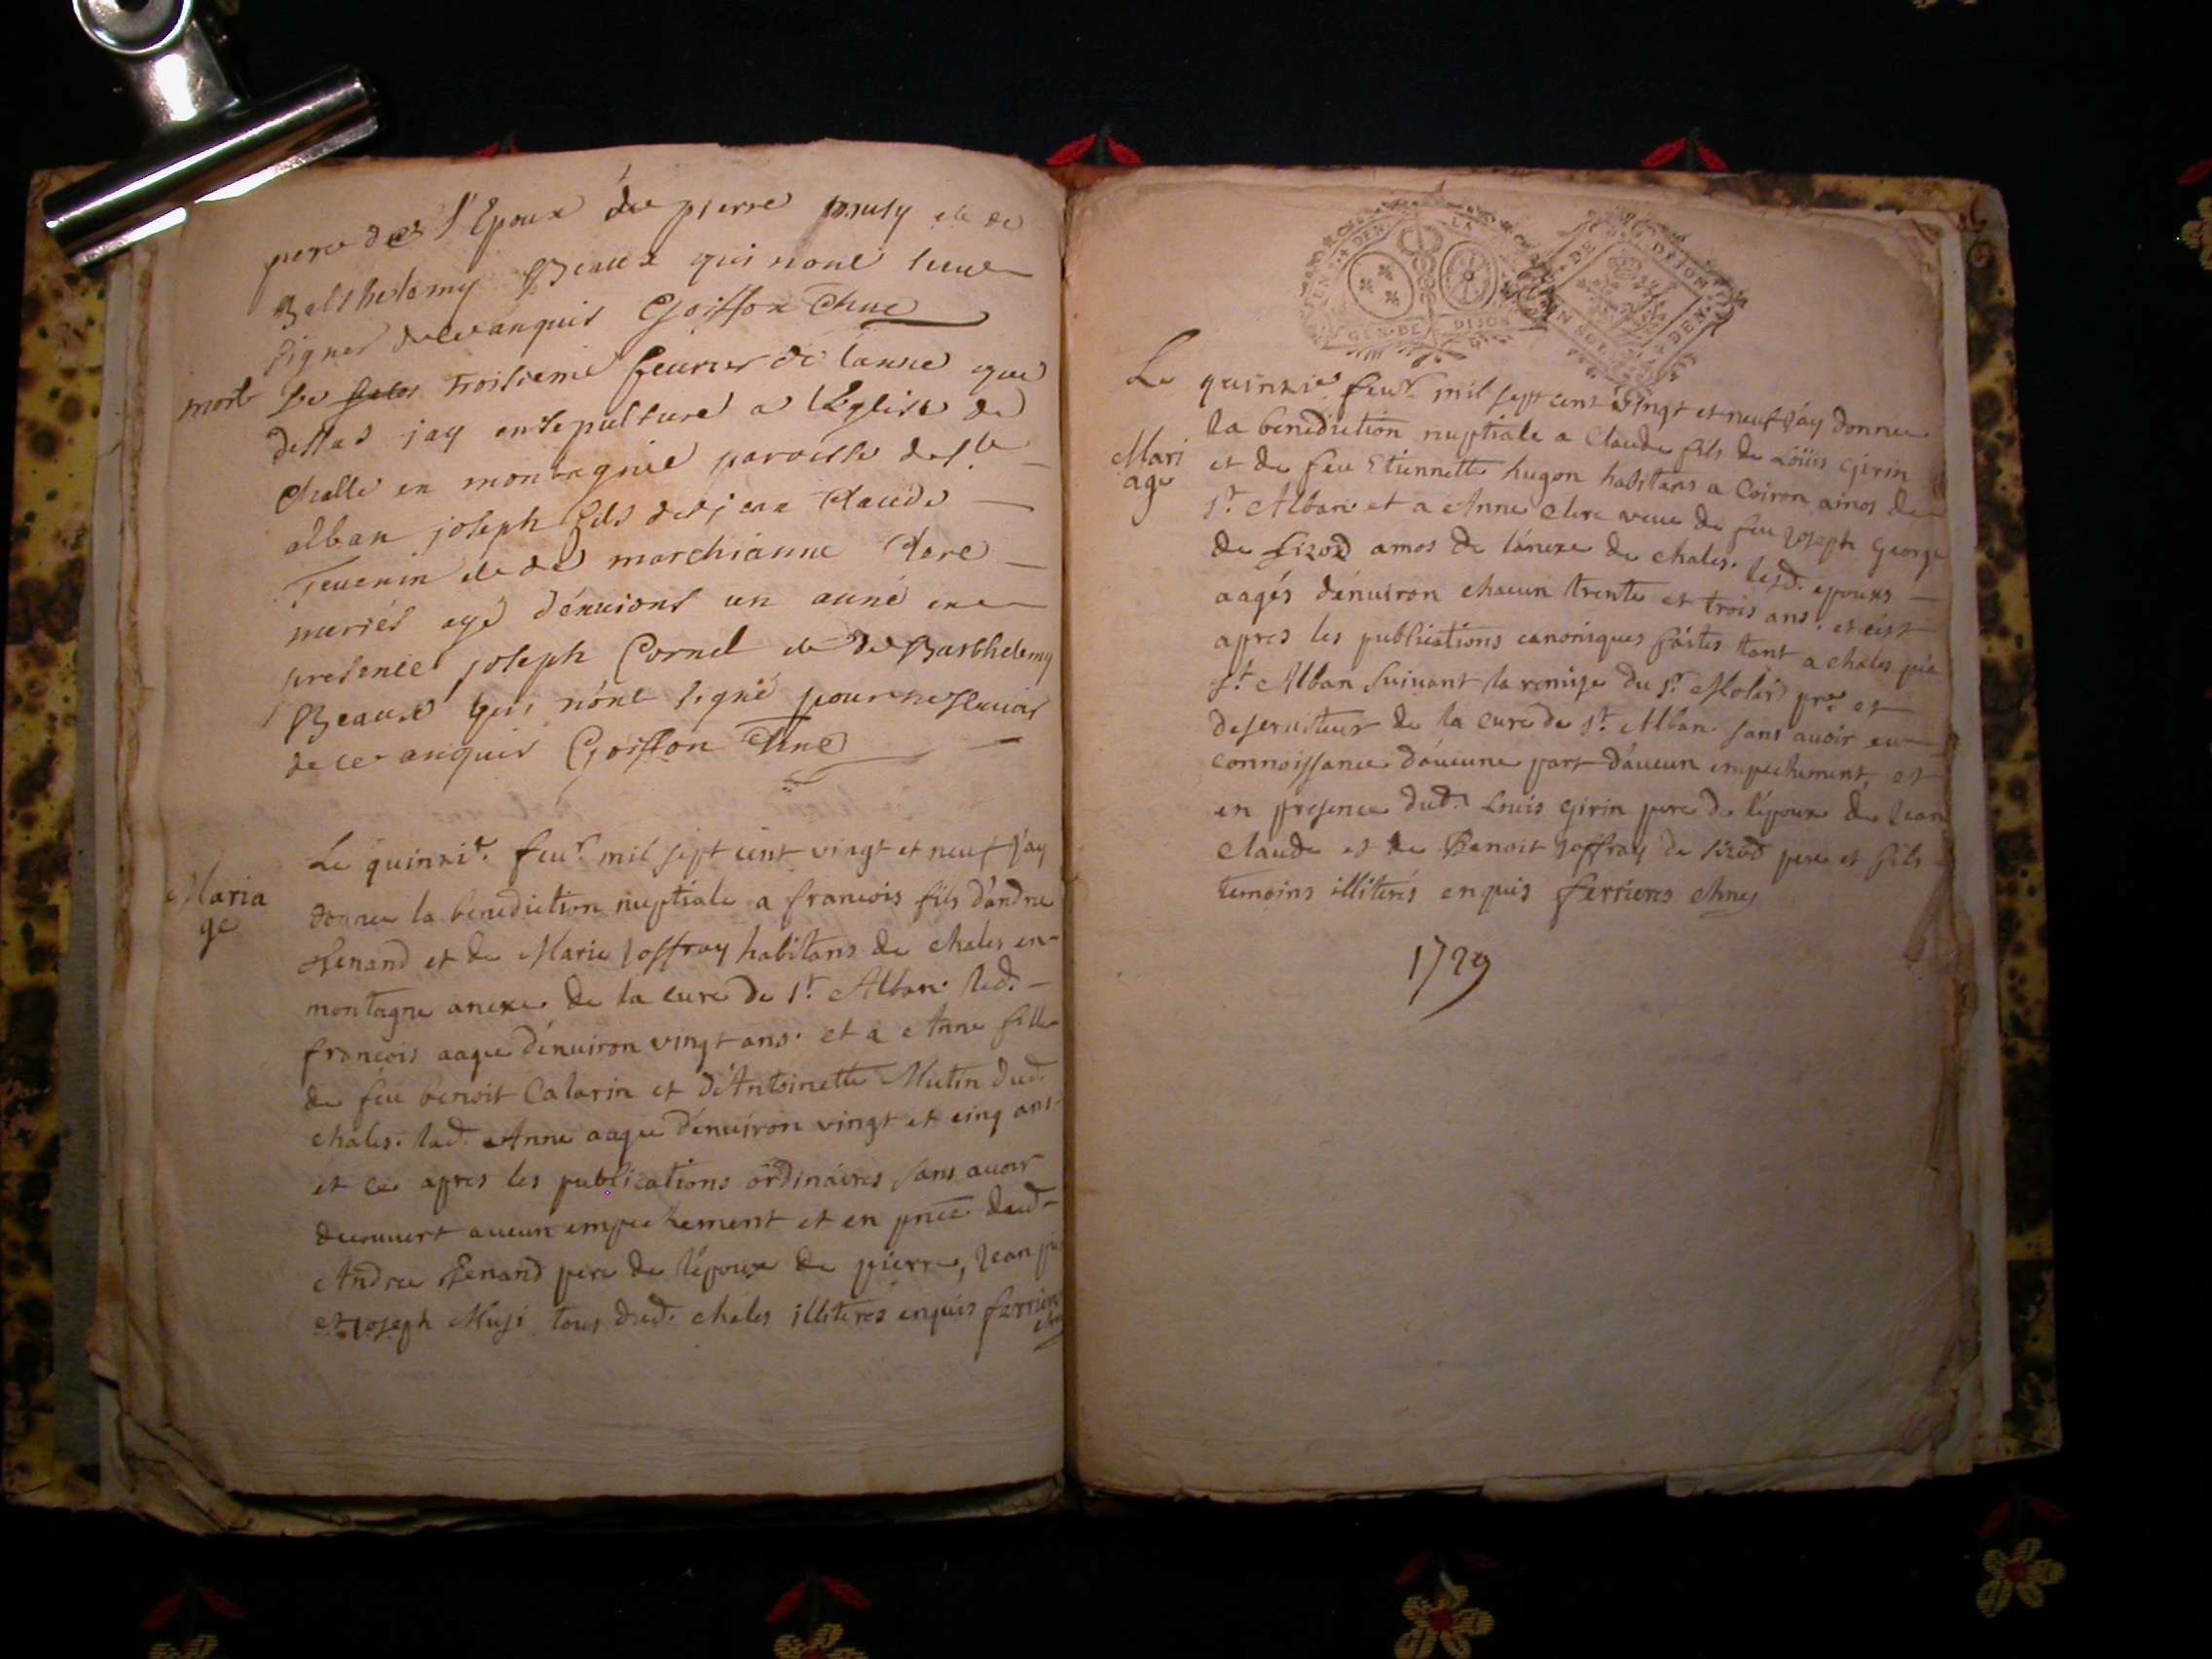 pere de l'Epoux de pierre musy et de
Balthelemy Beaux qui nont sceu
signer de ce anquis Goiffon Chne
mort
Le troisieme feurier de lanne que
dessus jay ensepulturé a l'Eglise de
Challe en montagnie paroisse de st
alban joseph fils de jean Claude
Teuenin et de marchianne Clere
mariés agé d'enuirons un anné en
presence joseph Cornel et de Barthelemy
Beaux qui n'ont signé pour ne scauoir
de ce anquis Goiffon Chne
Maria
ge
Le quinzie. feur. mil sept cent vingt et neuf j'ay
donnee la benediction nuptiale a francois fils d'andre
Renand et de Marie Joffray habitans de chales en
montagne anexe de la cure de st. Alban. led.
francois aagee d'enuiron vingt ans. et a Anne fille
de feu benoit Calarin et d'Antoinette Mutin dud.
chales. lad. Anne aagee d'enuiron vingt et cinq ans
et ce apres les publications ordinaires sans auoir
decouuert aucun empechement et en pnce dud.
Andre Renand pere de l'epoux de pierre, Jean
et joseph Musi tous dud. chales illiterés enquis ferrieres
GEN DE DIJON
Le quinzie. feur. mil sept cent vingt et neuf j'ay donnee
Mari
age
la benediction nuptiale a Claude fils de Loüis Girin
et de feu Etiennette hugon habitans a Coiron de
st. Alban et a Anne clere veue de feu Joseph George
de de l'anexe de chales. lesd. epouxs
aagés d'enuiron chacun trente et trois ans. et c'est
apres les publications canoniques faites tant a chales
st. Alban suivant la remise du sr. pre. et
deseruiteur de la cure de st. Alban. sans auoir eu
connoissance d'aucune part d'aucun empechement, et
en presence dud. Louis Girin pere de l'epoux de Jean
Claude et de Benoit Joffray de pere et fils
temoins illiterés enquis ferrieres
1729